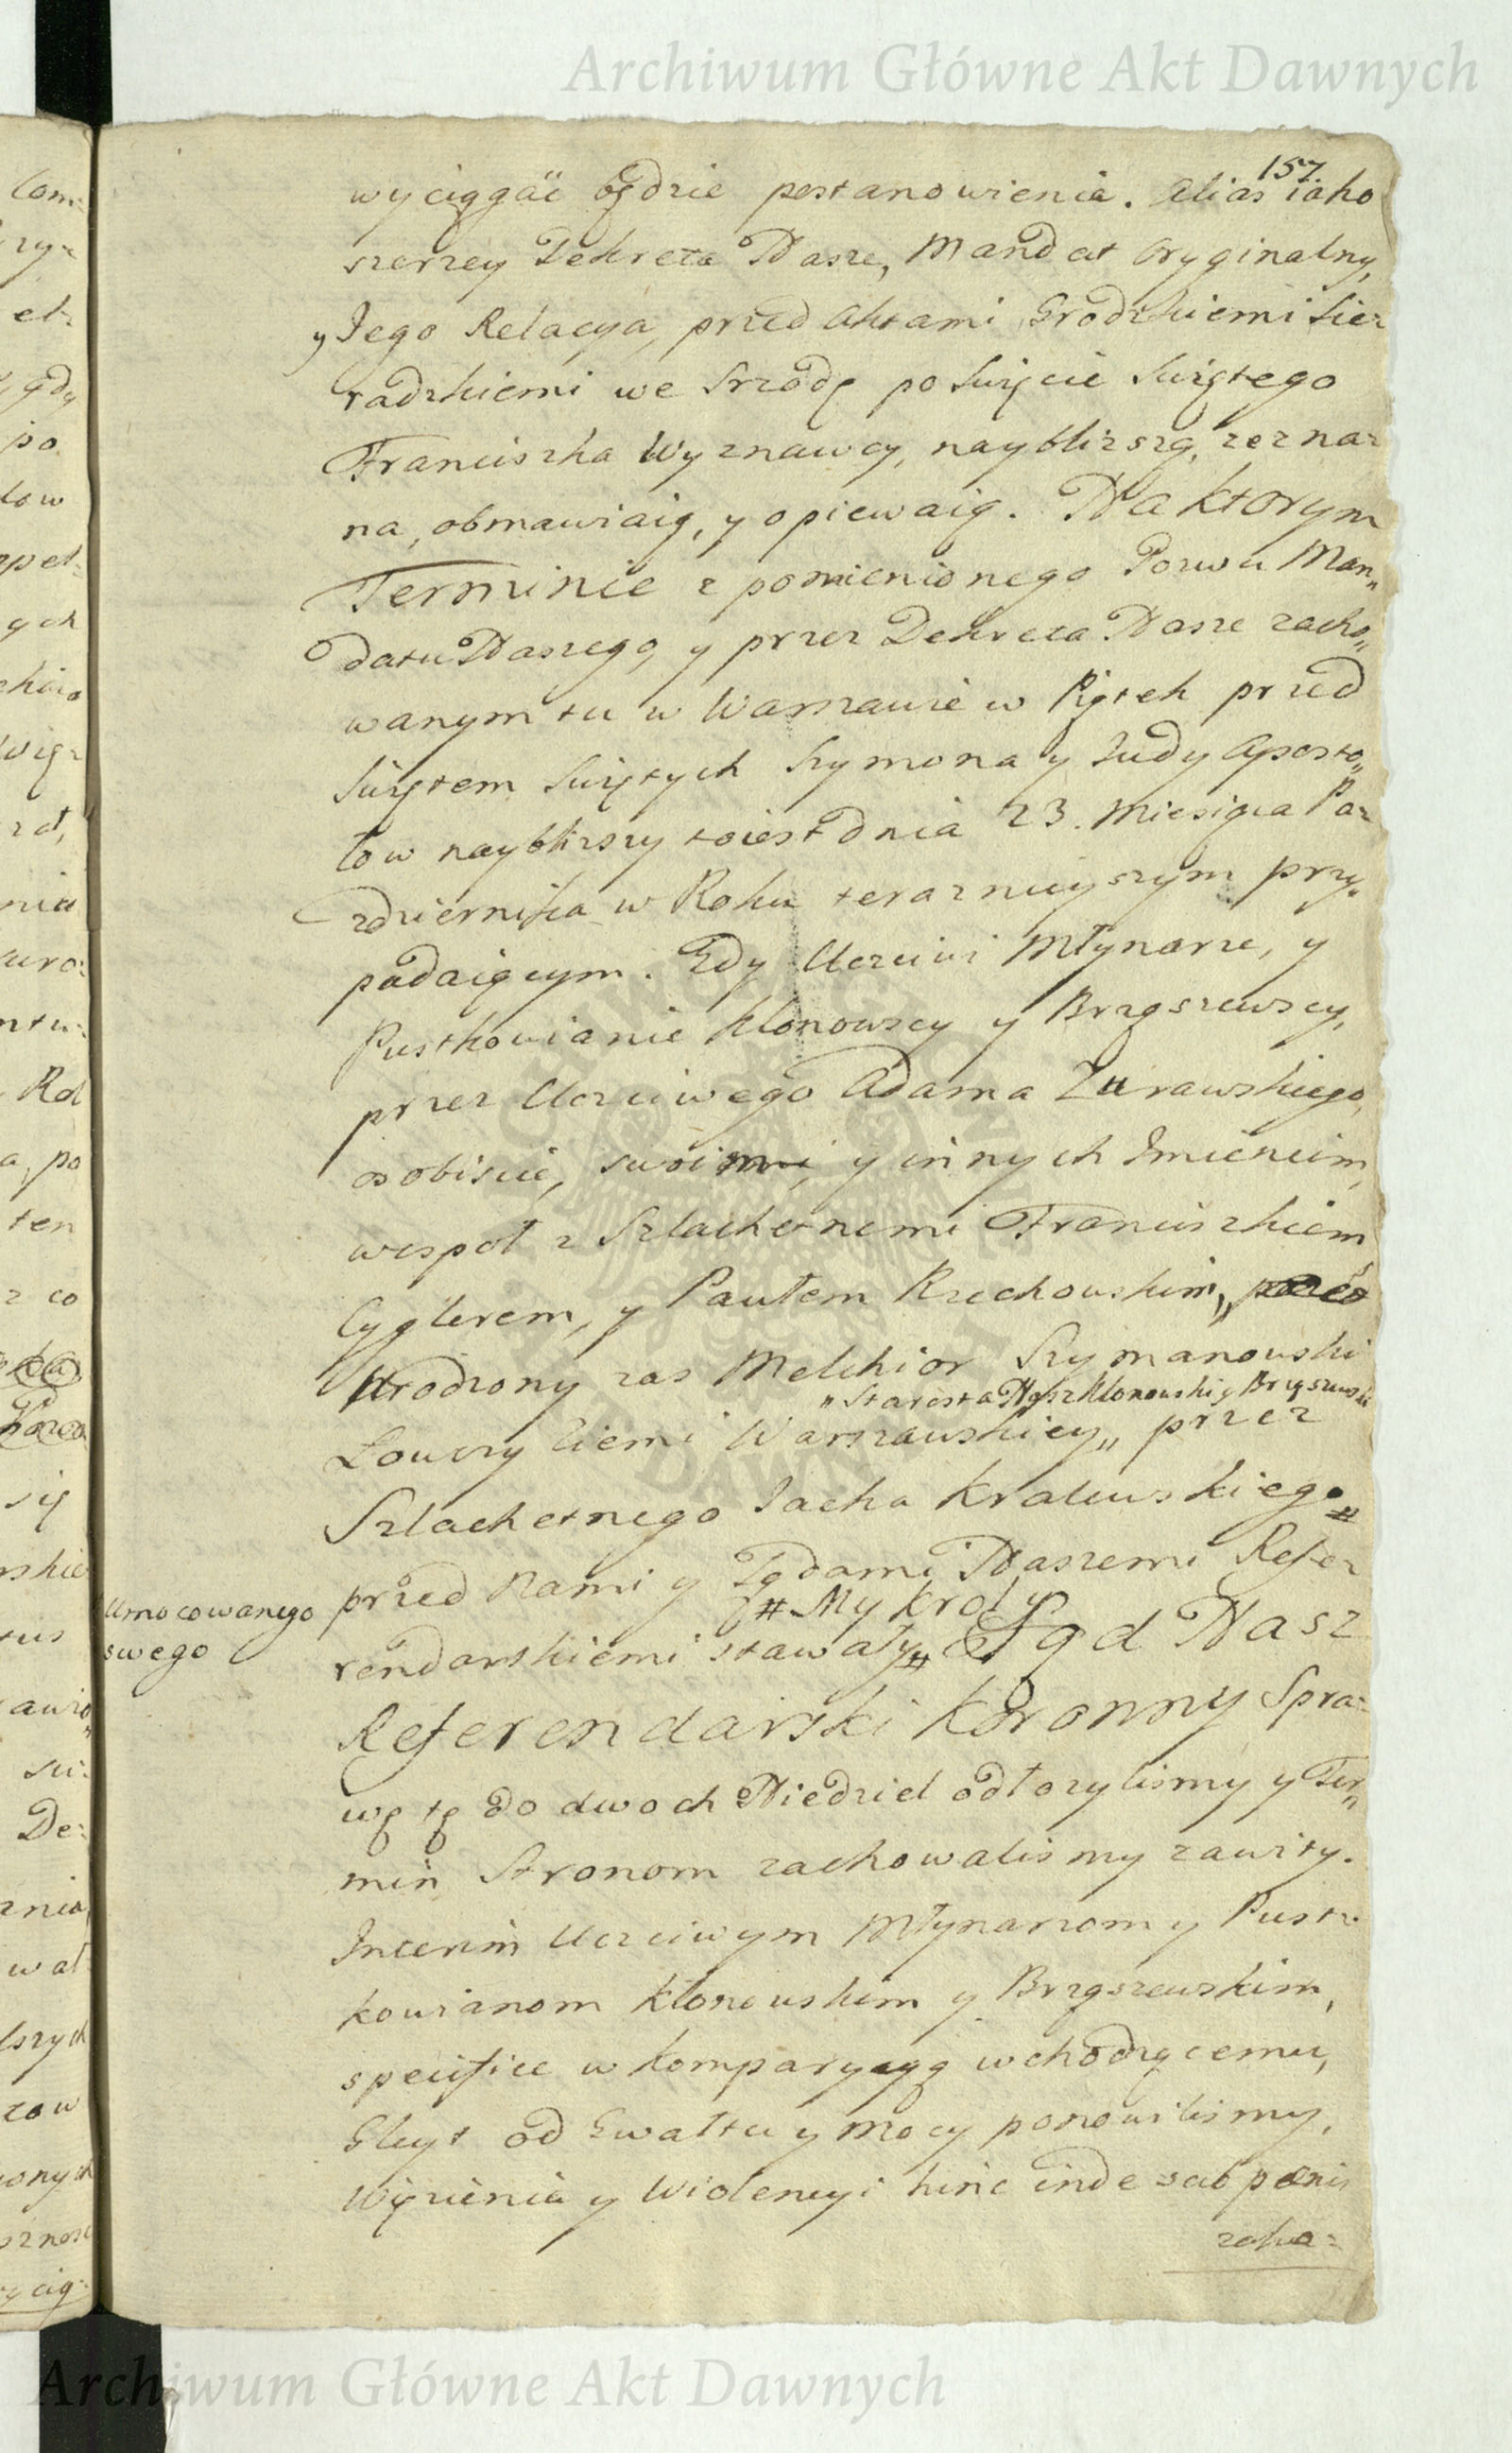 Archiwum Główne Akt Dawnych
157
wyciągać będzie postanowienia. Alias iako
szerzey Dekreta Nasze, Mandat Oryginalny,
y Jego Relacya, przed Aktami Grodzkiemi Sie=
radzkiemi we Srzodę po Swięcie Swiętego
Franciszka Wyznawcy, naybliższą, zezna=
na, obmawiaią, y opiewaią. Na ktorym
Terminie z pomienionego Pozwu Man„
datu Naszego, y przez Dekreta Nasze zacho„
wanym tu w Warszawie w Piątek przed
Swiętem Swiętych Szymona y Judy Aposto„
łow naybliższy toiest dnia 23. Miesiąca Pa=
zdziernika w Roku teraznieyszym przy„
padaiącym. Gdy Uczciwi Młynarze, y
Pustkowianie Klonowscy y Brząszewscy,
przez Uczciwego Adama Żurawskiego,
osobiscie, swoim, y innych Imieniem,
wespoł z Szlachetnemi Franciszkiem
Cyglerem, y Pawłem Rzechowskim,
Urodzony zas Melchior Szymanowski
„Starosta Nasz Klonowski y Brząszewski
Łowczy Ziemi Warszawskiey„ przez
Szlachetnego Jacka Kralewskiego #
przed Nami y Sądami Naszemi Refe=
# My Krol y
rendarskiemi stawały # Sąd Nasz
Umocowanego
swego
Referendarski Koronny Spra=
wę tę do dwoch Niedziel odłozylismy y Ter„
min Stronom zachowalismy zawity.
Interim Uczciwym Młynarzom y Pust=
kowianom Klonowskim y Brząszewskim,
specifice w komparycyą wchodzącemu,
Gleyt od Gwałtu y mocy ponowilismy,
Więzienia y Wiolencyi hinc inde sub pœnis
zaka=
Archiwum Główne Akt Dawnych